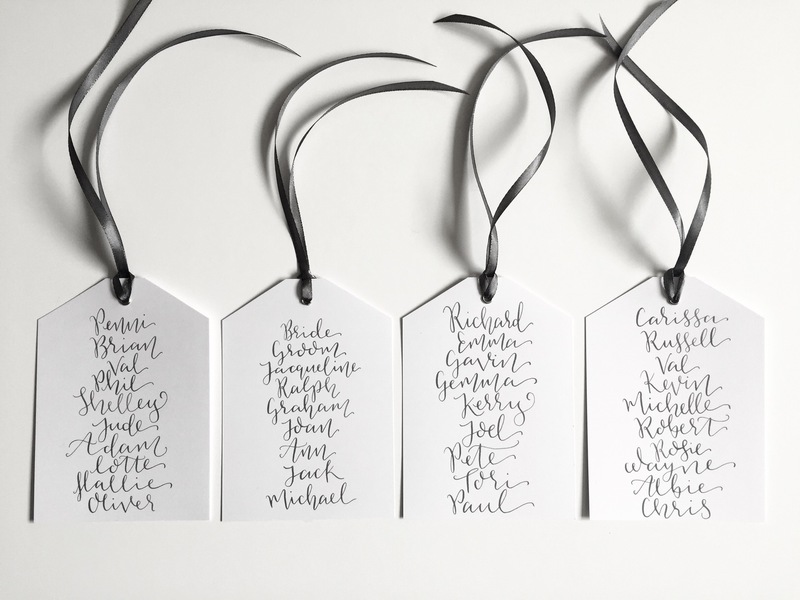 Penni
Brian
Val
Phil
Shelley
Jude
Adam
Lotte
Hallie
Oliver
Bride
Groom
Jacqueline
Ralph
Graham
Joan
Ann
Jack
Michael
Richard
Emma
Gavin
Gemma
Kerry
Joel
Pete
Tori
Paul
Carissa
Russell
Val
Kevin
Michelle
Robert
Rosie
Wayne
Albie
Chris